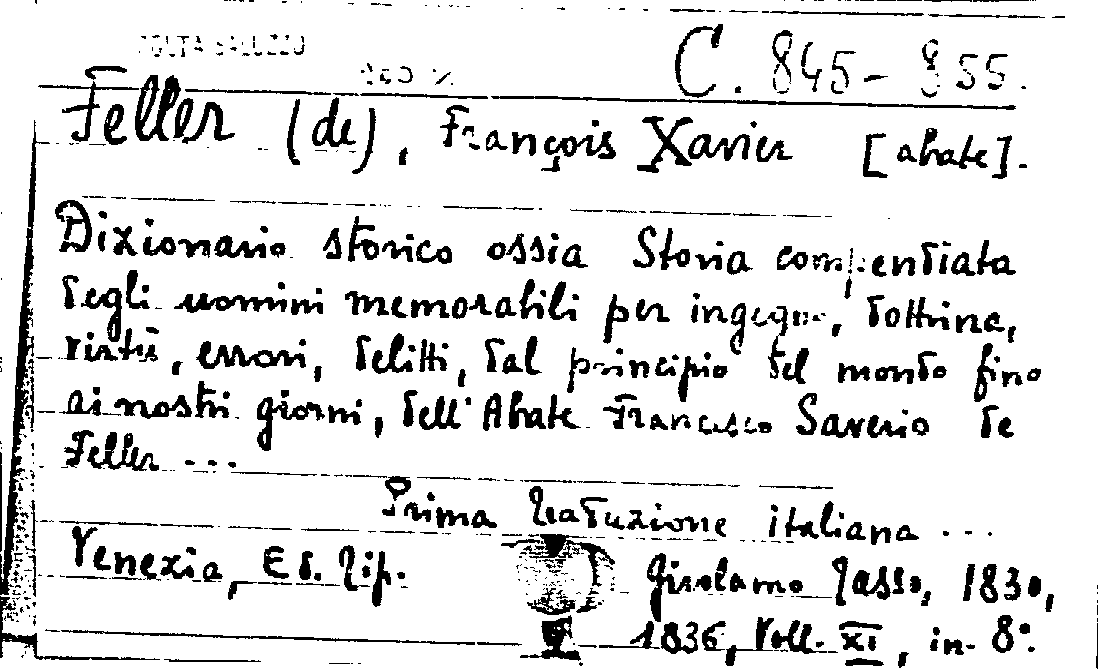 C. 845-855.
Feller (de), François Xavier [abate].
Dizionario storico ossia Storia compendiata
degli uomini memorabili per ingegno, dottrina,
virtù, errori, delitti, dal principio del mondo fino
ai nostri giorni, dell'Abate Francesco Saverio de
Feller ...
Prima traduzione italiana ...
Venezia, Ed. Tip. Girolamo Tasso, 1830,
1836, Voll. XI, in-8°.